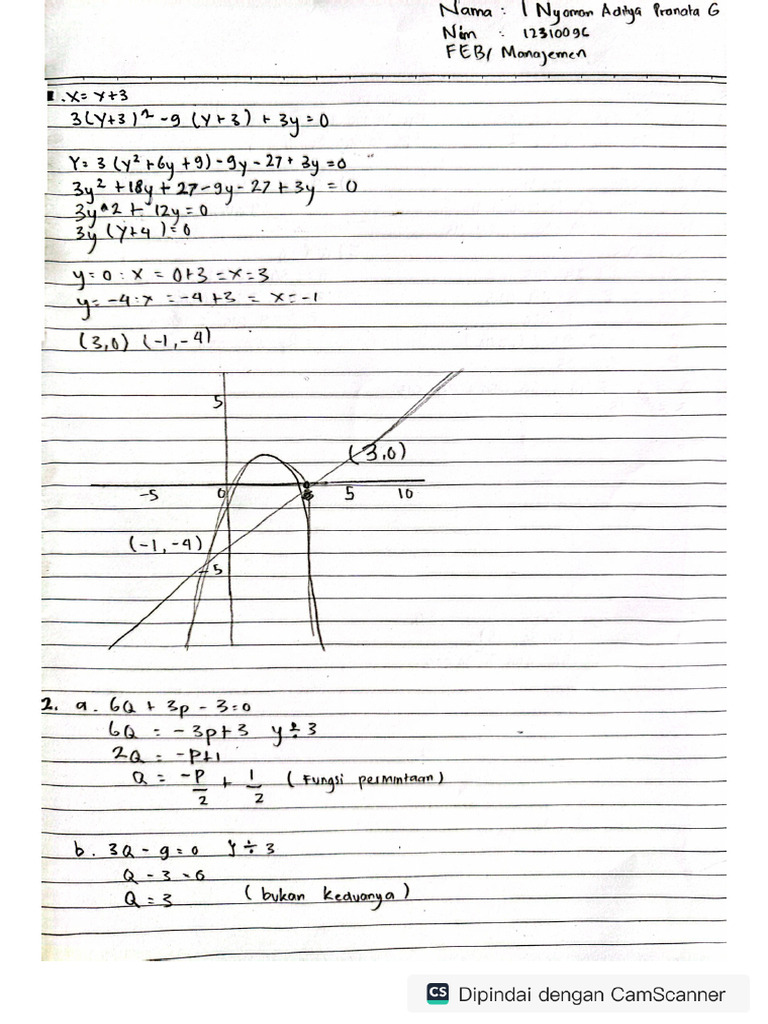 Nama : I Nyoman Aditya Pranata G
Nim : 12310096
FEB/ Manajemen
1. x = y+3
3(y+3)² - 9 (y+3) + 3y = 0
Y = 3 (y² + 6y + 9) - 9y - 27 + 3y = 0
3y² + 18y + 27 - 9y - 27 + 3y = 0
3y^2 + 12y = 0
3y (y+4) = 0
y = 0 : x = 0+3 = x = 3
y = -4 : x = -4 + 3 = x = -1
(3,0) (-1,-4)
5
(3,0)
-5 0 3 5 10
(-1,-4)
-5
2. a. 6Q + 3p - 3 = 0
6Q = -3p+3 y ÷ 3
2Q = -P+1
Q = -P/2 + 1/2 (Fungsi permintaan)
b. 3Q - 9 = 0 y ÷ 3
Q - 3 = 0
Q = 3 (bukan keduanya)
CS Dipindai dengan CamScanner